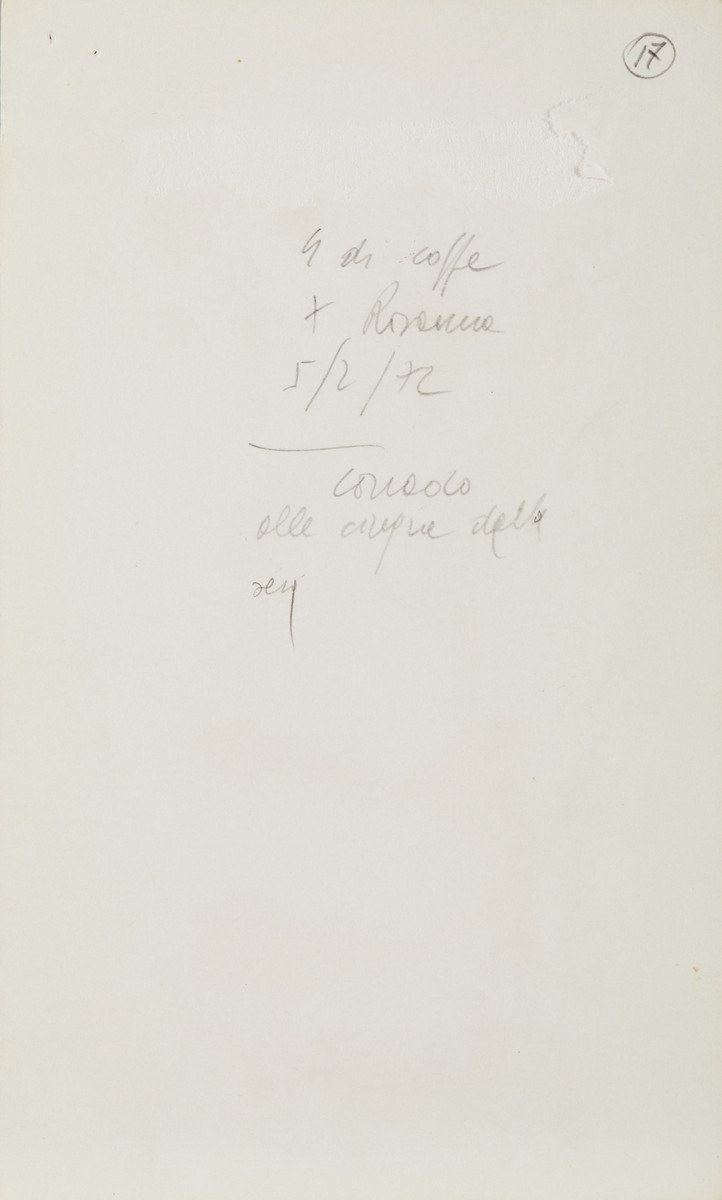 17
4 di caffe
x Rosanna
5/2/72
Corrado
alle cinque della